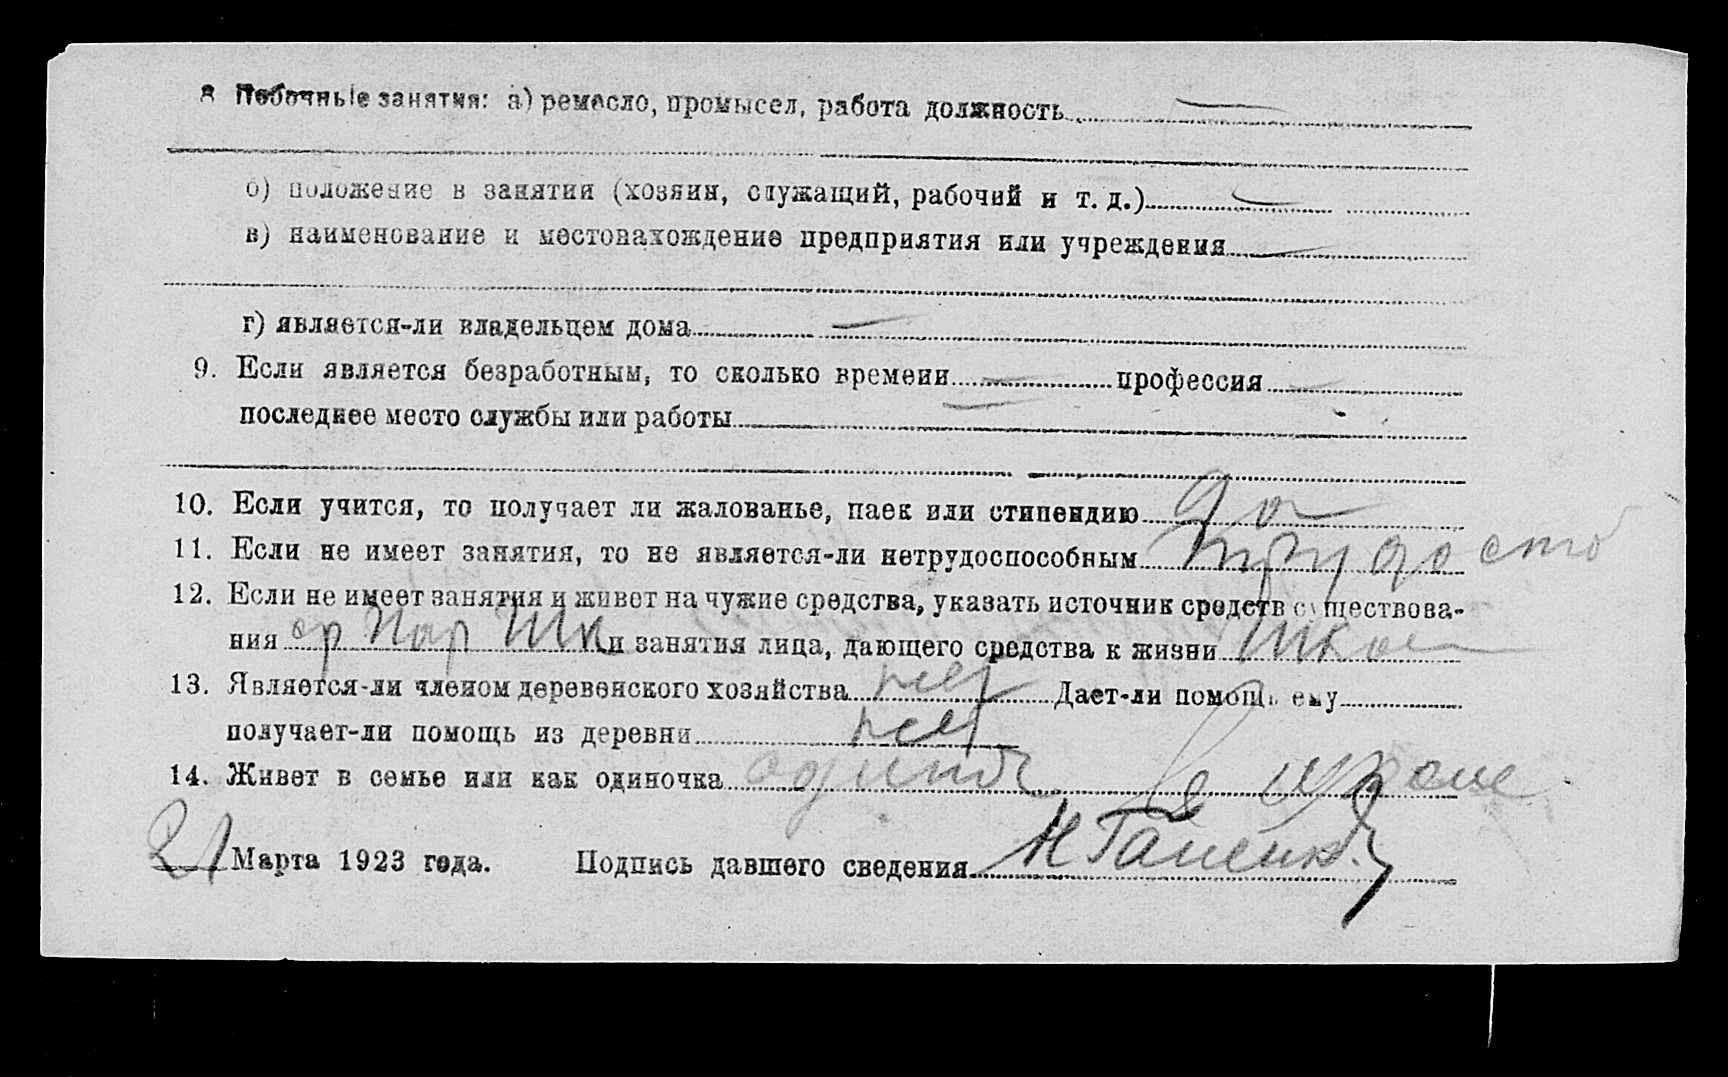 8 Побочные занятия: а) ремесло, промысел, работа должность —
б) положение в занятии (хозяин, служащий, рабочий и т. д.) —
в) наименование и местонахождение предприятия или учреждения —
г) является-ли владельцем дома —
9. Если является безработным, то сколько времени — профессия —
последнее место службы или работы —
10. Если учится, то получает ли жалованье, паек или стипендию да
11. Если не имеет занятия, то не является-ли нетрудоспособным
12. Если не имеет занятия и живет на чужие средства, указать источник средств существова-
ния и занятия лица, дающего средства к жизни
13. Является-ли членом деревенского хозяйства нет Дает-ли помощь ему
получает-ли помощь из деревни нет
14. Живет в семье или как одиночка
21 Марта 1923 года. Подпись давшего сведения